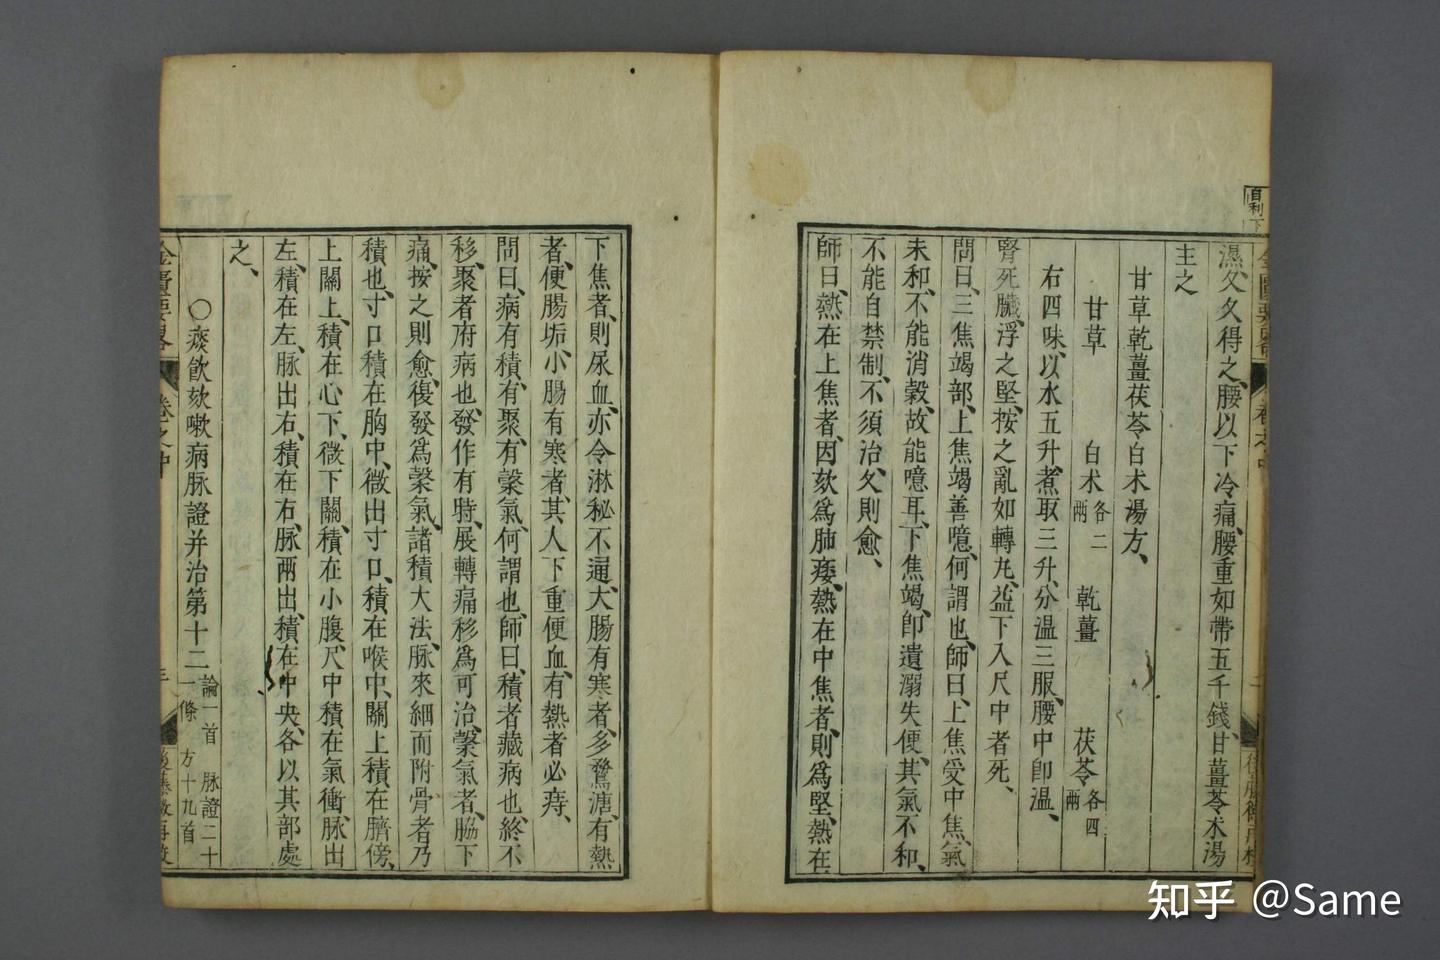 濕久久得之、腰以下冷痛、腰重如帶五千錢、甘薑苓朮湯
主之
甘草乾薑茯苓白朮湯方、
甘草 白朮各二兩 乾薑 茯苓各四兩
右四味、以水五升、煮取三升、分溫三服、腰中卽溫、
腎死臟、浮之堅、按之亂如轉丸、益下入尺中者死、
問曰、三焦竭部、上焦竭善噫、何謂也、師曰、上焦受中焦、氣
未和、不能消穀、故能噫耳、下焦竭、卽遺溺失便、其氣不和、
不能自禁制、不須治、久則愈、
師曰、熱在上焦者、因欬爲肺痿、熱在中焦者、則爲堅、熱在
下焦者、則尿血、亦令淋秘不通、大腸有寒者、多鶩溏、有熱
者、便腸垢、小腸有寒者、其人下重便血、有熱者必痔、
問曰、病有積、有聚、有䅽氣、何謂也、師曰、積者臟病也、終不
移、聚者府病也、發作有時、展轉痛移爲可治、䅽氣者、脇下
痛、按之則愈、復發爲䅽氣、諸積大法、脈來細而附骨者乃
積也、寸口積在胸中、微出寸口、積在喉中、關上積在臍傍、
上關上、積在心下、微下關、積在小腹、尺中積在氣衝、脈出
左、積在左、脈出右、積在右、脈兩出、積在中央、各以其部處
之、
○痰飮欬嗽病脈證并治第十二 論一首 脈證二十一條 方十九首
金匱要畧 卷之中
知乎 @Same